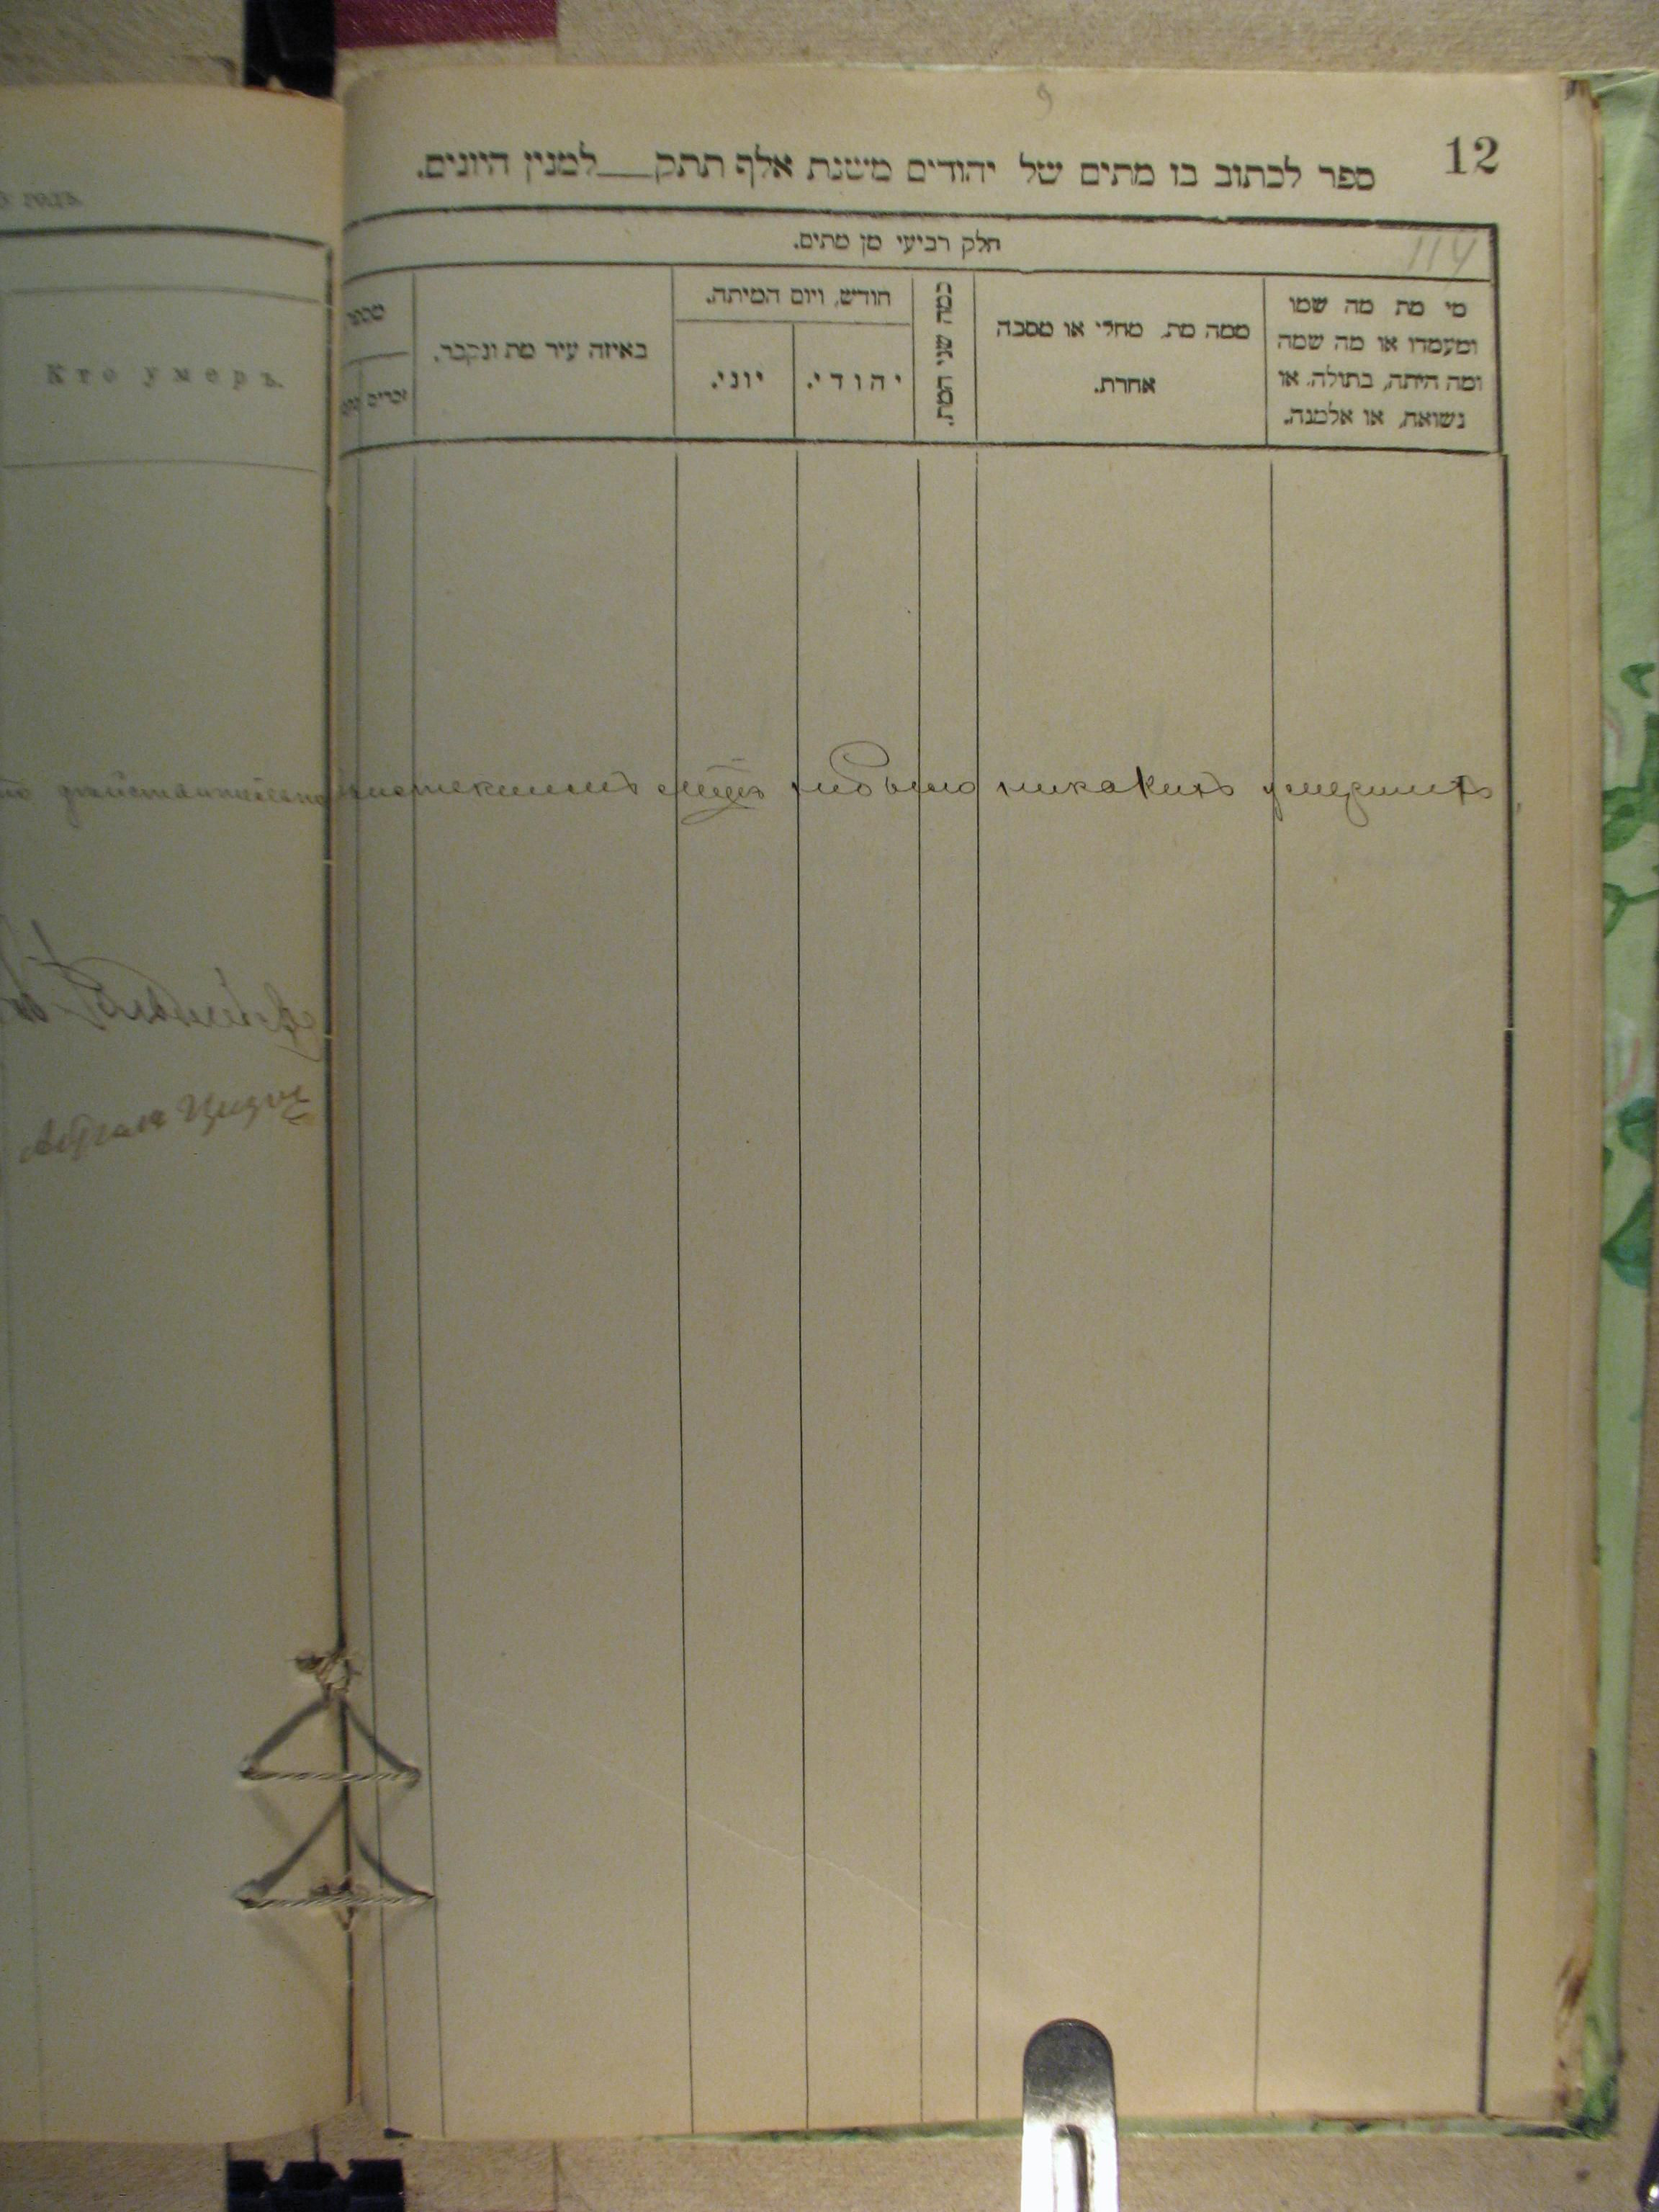 12
ספר לכתוב בו מתים של יהודים משנת אלף תתק___למנין היונים.
114
חלק רביעי מן מתים.
מי מת מה שמו
ומעמדו או מה שמה
ומה היתה, בתולה, או
נשואה, או אלמנה.
ממה מת, מחלי או מסבה
אחרת.
כמה שני המת.
חודש, ויום המיתה.
יהודי.
יוני.
באיזה עיר מת ונקבר.
מספר
זכרים
годъ
Кто умеръ.
действительно истекшемъ небыло никакихъ умершихъ